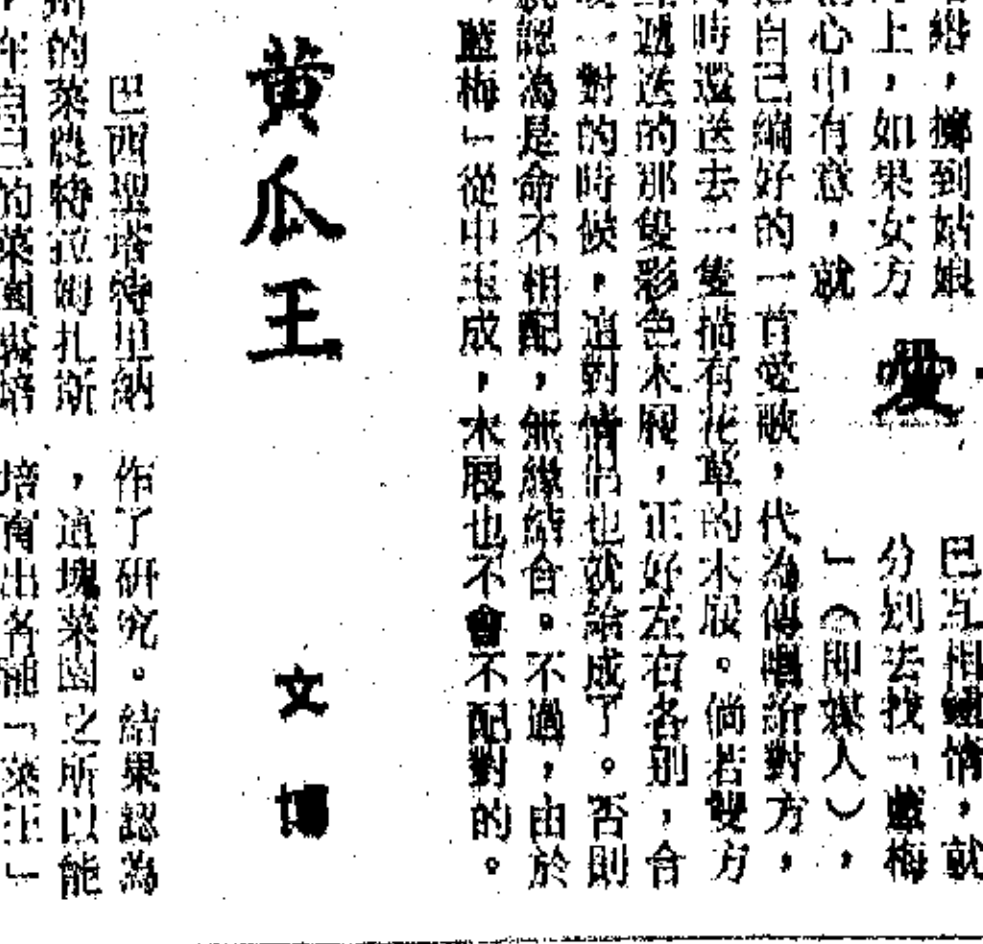 絡，擲到姑娘
上，如果女方
心中有意，就
愛
已互相鍾情，就
分別去找「藍梅
」（即媒人），
自己編好的一首愛歌，代為傳唱給對方，
時還送去一隻描有花草的木屐。倘若雙方
遞送的那隻彩色木屐，正好左右各別，合
一對的時候，這對情侶也就結成了。否則
認為是命不相配，無緣結合。不過，由於
藍梅」從中玉成，木屐也不會不配對的。
黃瓜王
文
巴西聖塔特里納
州的菜農特拉姆扎斯
年自己的菜園栽培
作了研究。結果認為
，這塊菜園之所以能
培育出名種「菜王」